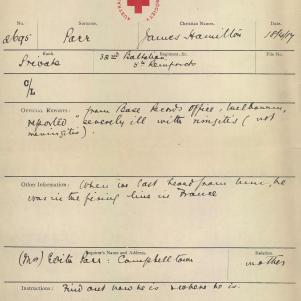 No. Surname. Christian Names. Date.
2695 Parr James Hamilton 18/6/17
Rank. Regiment, &c. File No.
Private 38th Battalion
5th Reinfcmts
C/L
OFFICIAL REPORTS: from Base Records Office, Melbourne,
reported "severely ill with ningitis (not
meningitis).
Other Information: When we last heard from him, he
was in the firing line in France
Inquirer's Name and Address. Relation.
(Mrs) Edith Parr: Campbell Town mother
Instructions: Find out how he is & where he is.